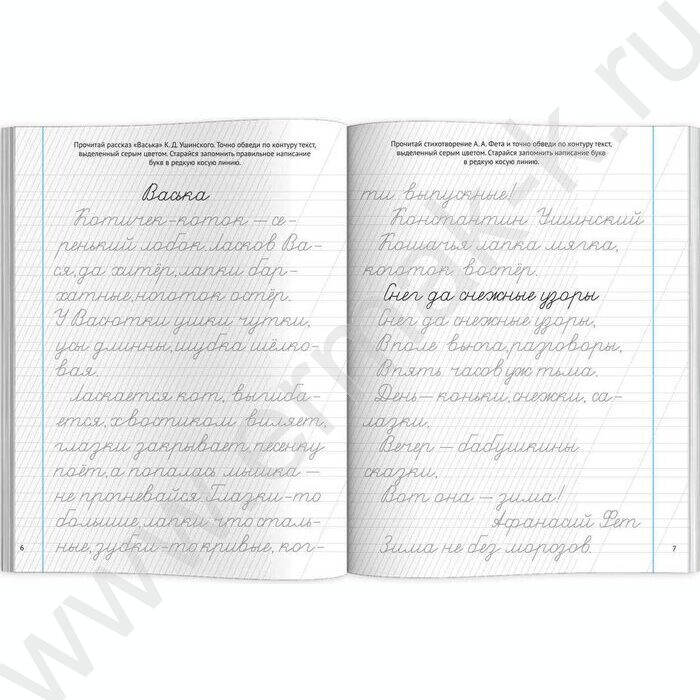 Прочитай рассказ «Васька» К. Д. Ушинского. Точно обведи по контуру текст,
выделенный серым цветом. Старайся запомнить правильное написание
букв в редкую косую линию.
Васька
Котичек-коток — се-
ренький лобок. Ласков Ва-
ся, да хитёр, лапки бар-
хатные, ноготок остёр.
У Васютки ушки чутки,
усы длинны, шубка шёлко-
вая.
Ласкается кот, выгиба-
ется, хвостиком виляет,
глазки закрывает, песенку
поёт, а попалась мышка —
не прогневайся. Глазки-то
большие, лапки что сталь-
ные, зубки-то кривые, ког-
6
Прочитай стихотворение А. А. Фета и точно обведи по контуру текст,
выделенный серым цветом. Старайся запомнить написание букв
в редкую косую линию.
ти выпускные!
Константин Ушинский
Кошачья лапка мягка,
коготок востёр.
Снег да снежные узоры
Снег да снежные узоры,
В поле вьюга, разговоры,
В пять часов уж тьма.
День — коньки, снежки, са-
лазки,
Вечер — бабушкины
сказки,
Вот она — зима!
Афанасий Фет
Зима не без морозов.
7
www.ermak-k.ru